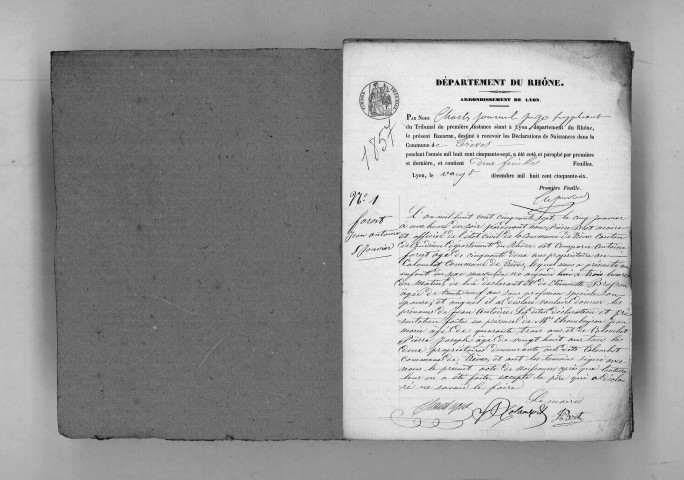 DÉPARTEMENT DU RHÔNE.
ARRONDISSEMENT DE LYON.
PAR NOUS Charles juge suppléant
du Tribunal de première instance séant à Lyon, département du Rhône,
le présent REGISTRE, destiné à recevoir les Déclarations de Naissances dans la
Commune de Trèves
pendant l'année mil huit cent cinquante-sept, a été coté et paraphé par première
et dernière, et contient deux feuilles Feuilles.
Lyon, le vingt décembre mil huit cent cinquante-six.
Première Feuille.
1857
N° 1
foront
Jean antoine
5 Janvier
L'an mil huit cent cinquante sept le cinq janvier
a une heure du soir pardevant nous Pierre maire
et officier de l'état civil de la Commune de Trèves Canton
de département du Rhône est comparu antoine
foront agé de cinquante deux ans propriétaire au
Colombet Commune de Trèves, lequel nous a présenté un
enfant du sexe masculin né aujourd'hui à trois heures
du matin, de lui déclarant et de
agée de trente neuf ans sans profession son
épouse, et auquel il a déclaré vouloir donner les
prénoms de Jean Antoine. Les dites déclaration et pré
sentation faites en présence de Mr jean
marie agé de quarante trois ans, et de Colombet
Pierre Joseph agé de vingt huit ans tous les
deux propriétaires demeurants au dit Colombet
Commune de Trèves, et ont les témoins signé avec
nous le présent acte de naissance après que lecture
leur en a été faite, excepté le père qui a décla
ré ne savoir le faire
Le maire
Colombet